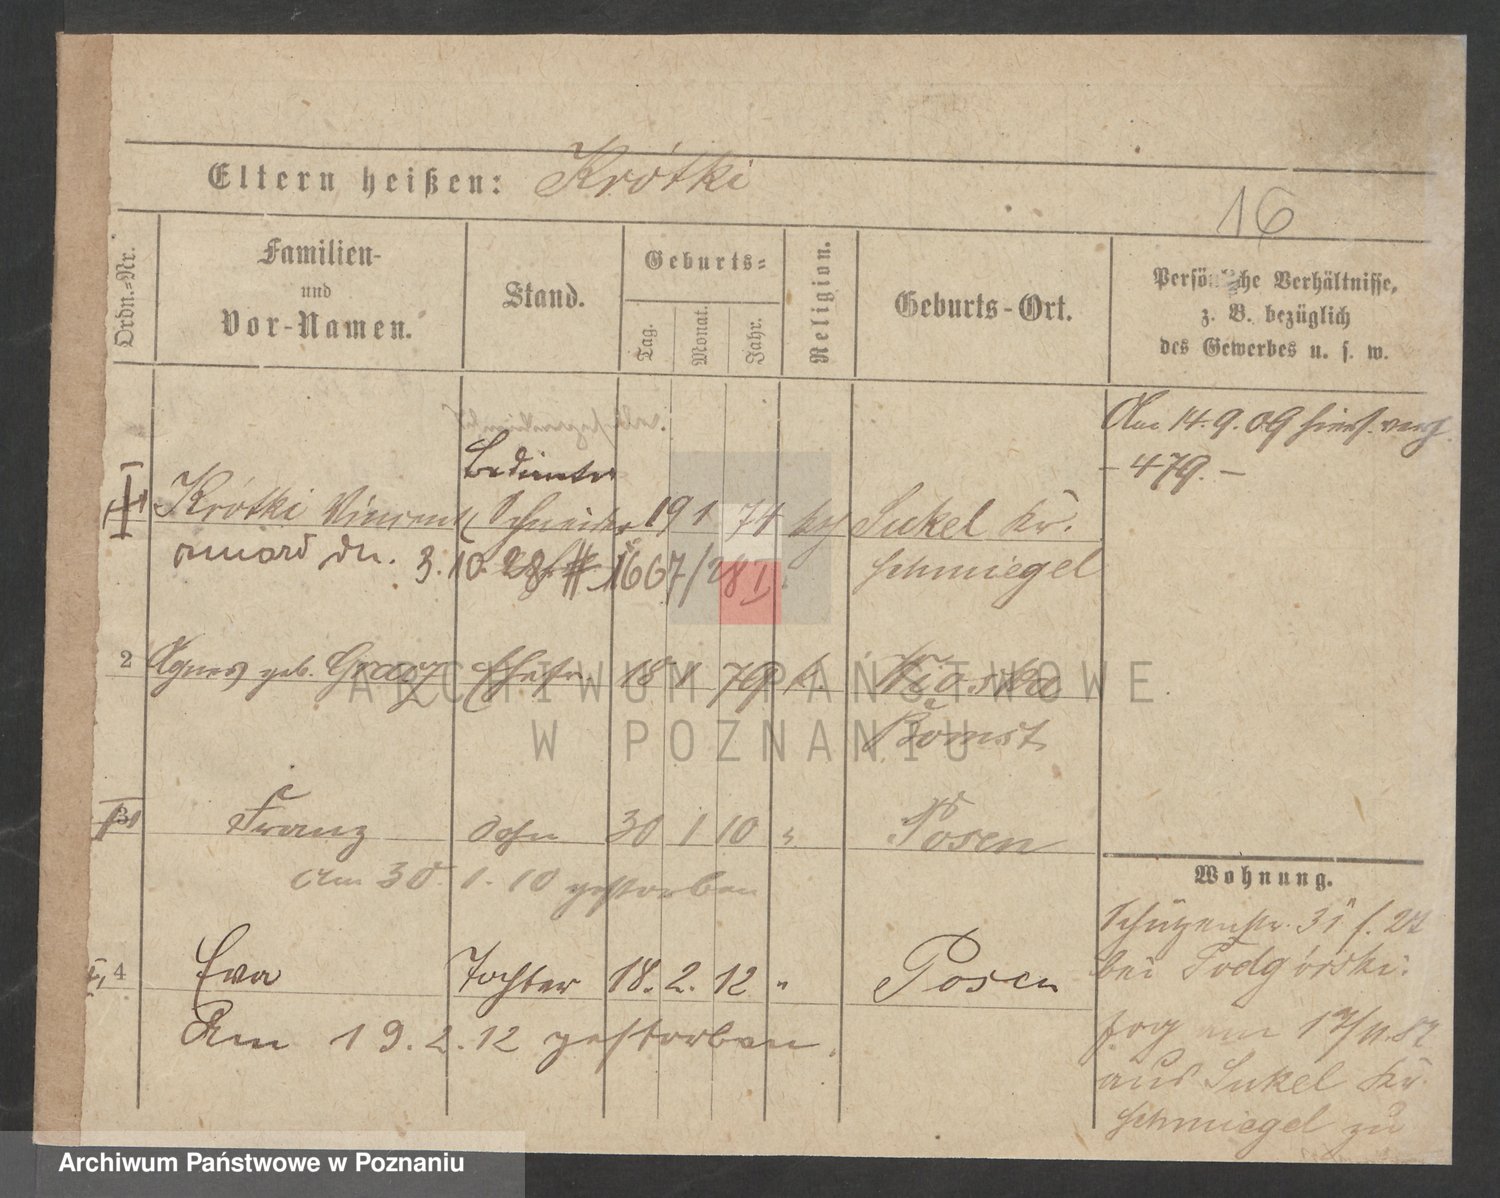 Eltern heißen: Krótki
16
Ordn.-Nr.
Familien-
und
Vor-Namen.
Stand.
Geburts-
Tag.
Monat.
Jahr.
Religion.
Geburts-Ort.
Persönliche Verhältnisse,
z. B. bezüglich
des Gewerbes u. s. w.
Am 14.9.09 hier
- 479. -
Bedienter
Krótki Vincent Schneider 19 1 74 Sukel Kr.
3.10.28 1667/28 I. Schmiegel
2 Agnes geb. Ehefr. 18 1 79 k.
Bomst
3 Franz Sohn 30 1 10 " Posen
am 30. 1. 10 gestorben
Wohnung.
Schützenstr. 31
4 Eva Tochter 18. 2. 12 " Posen
bei Podgórski.
Am 19. 2. 12 gestorben.
zog am
aus Sukel Kr.
Schmiegel zu
ARCHIWUM PAŃSTWOWE
W POZNANIU
Archiwum Państwowe w Poznaniu